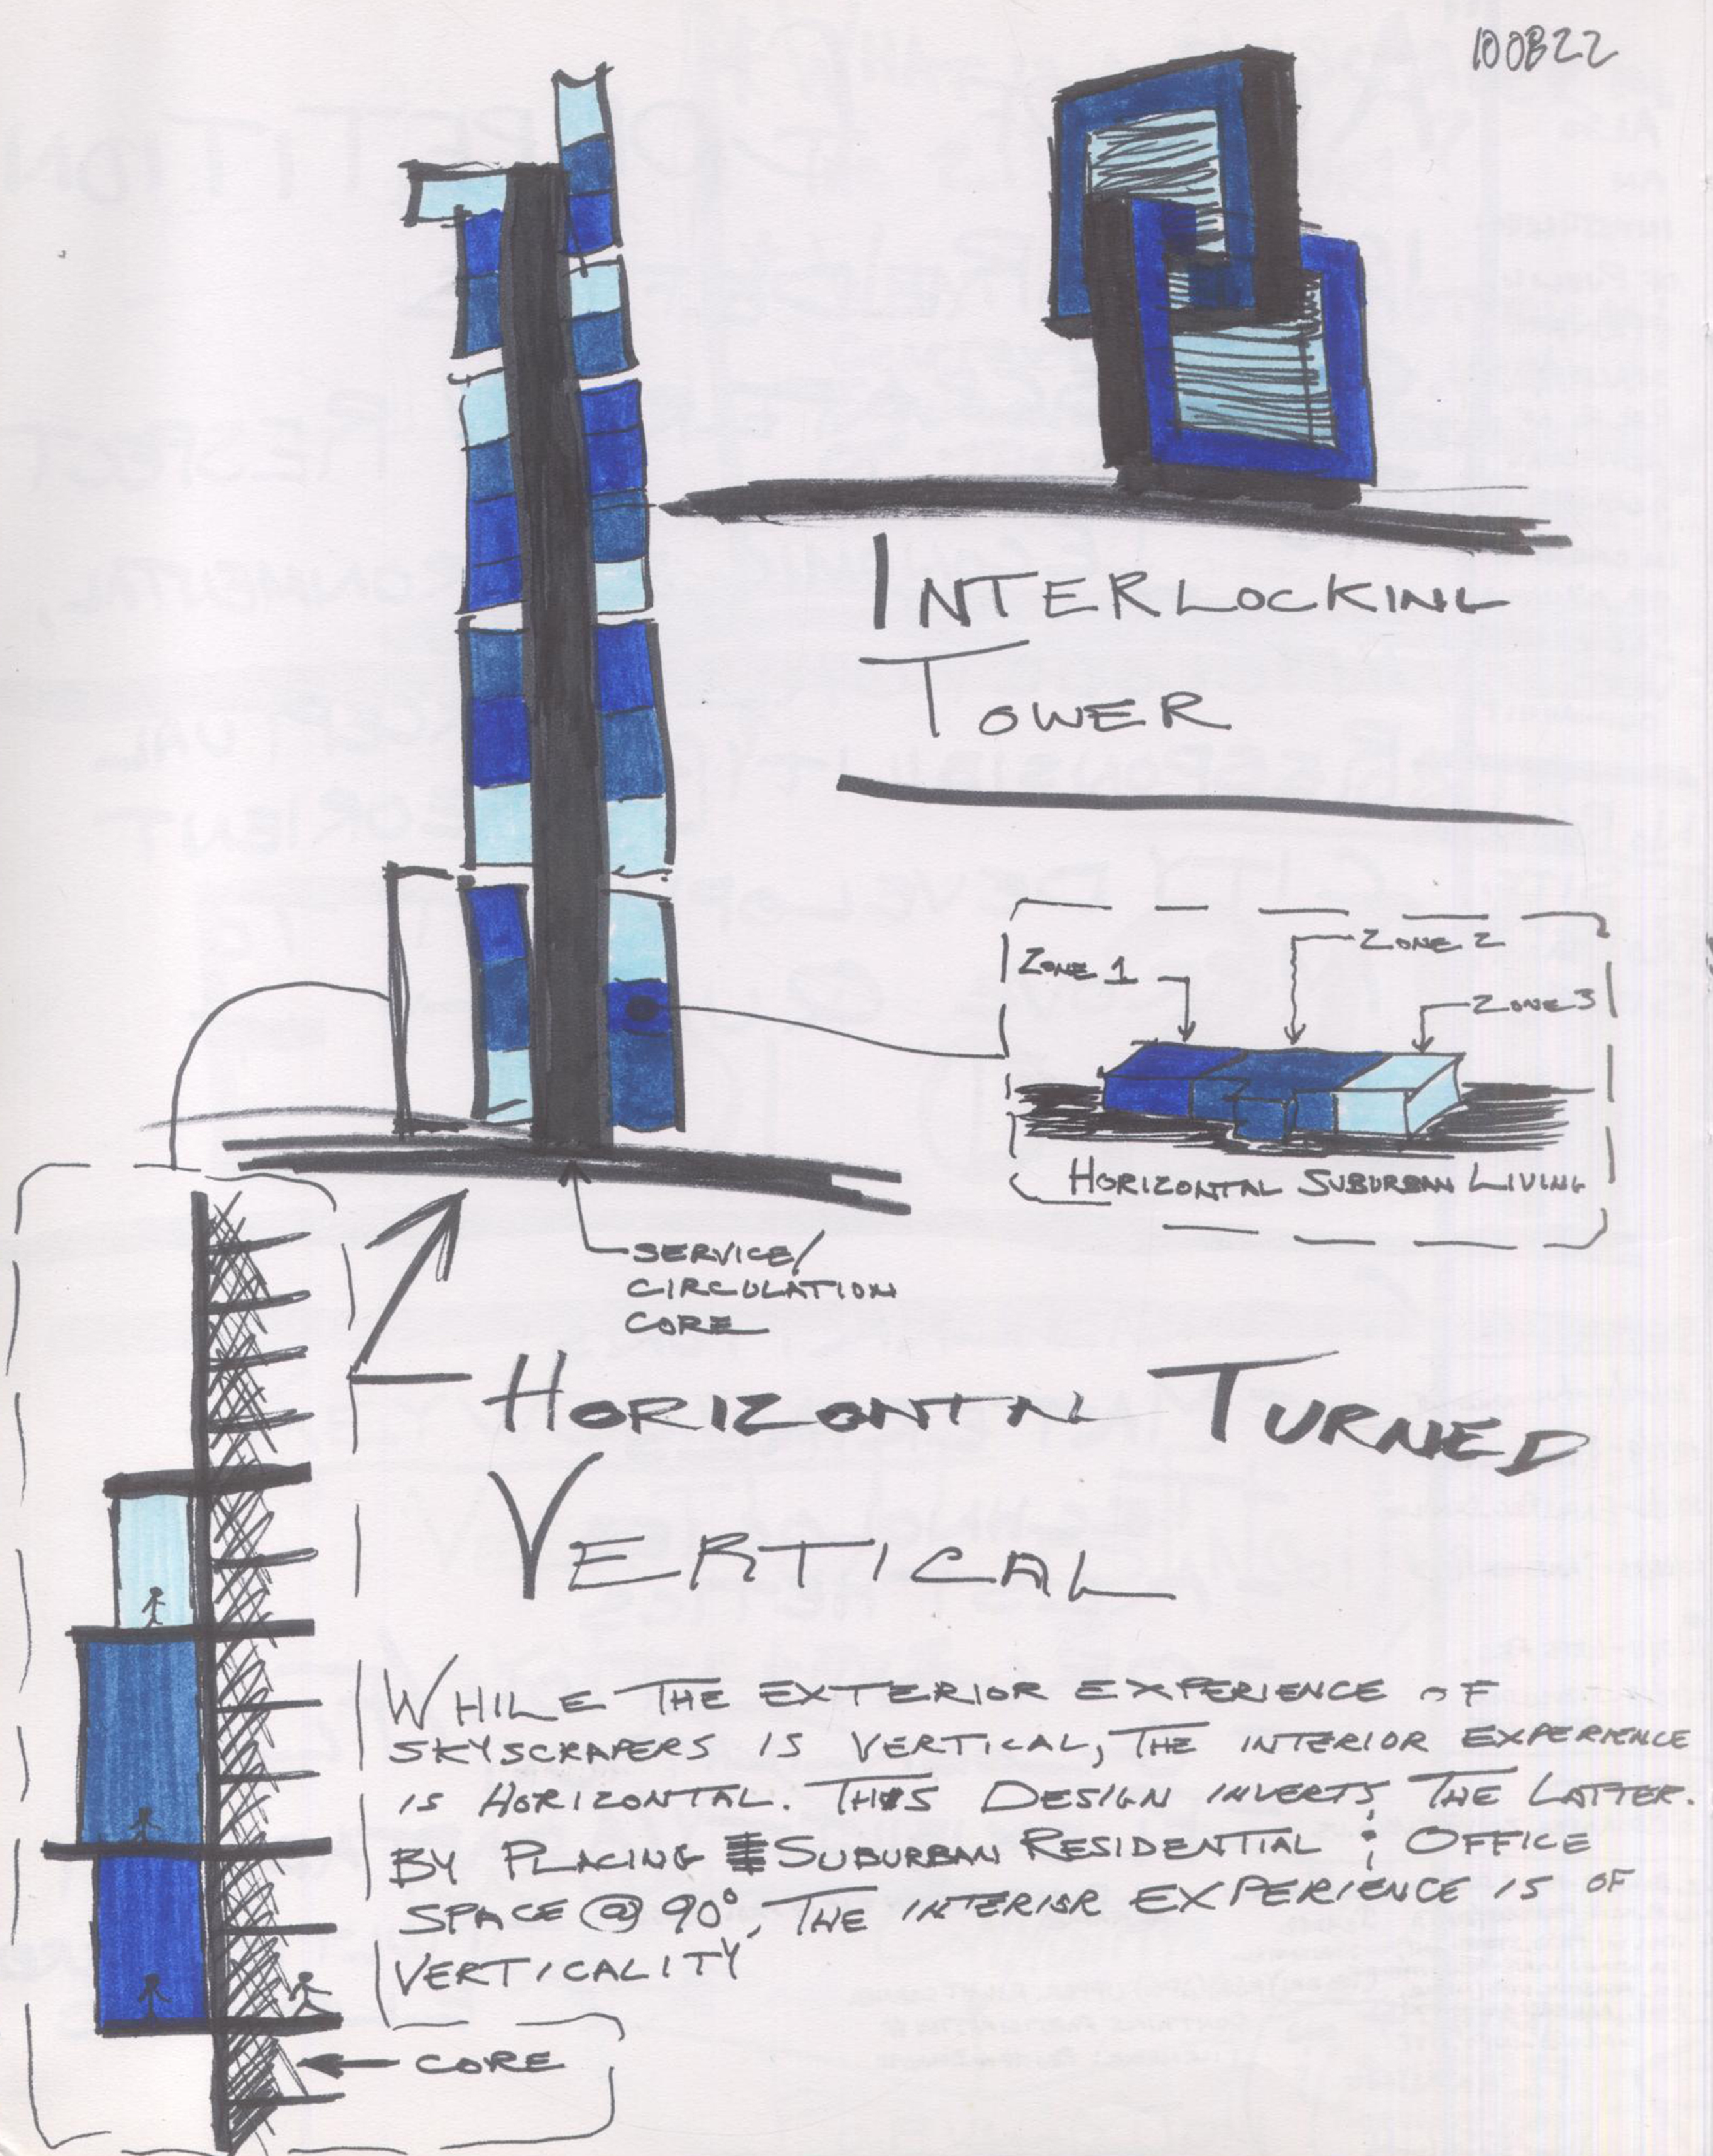 100B22
INTERLOCKING
TOWER
ZONE 1
ZONE 2
ZONE 3
HORIZONTAL SUBURBAN LIVING
SERVICE/
CIRCULATION
CORE
HORIZONTAL TURNED
VERTICAL
WHILE THE EXTERIOR EXPERIENCE OF
SKYSCRAPERS IS VERTICAL, THE INTERIOR EXPERIENCE
IS HORIZONTAL. THIS DESIGN INVERTS THE LATTER.
BY PLACING SUBURBAN RESIDENTIAL & OFFICE
SPACE @ 90°, THE INTERIOR EXPERIENCE IS OF
VERTICALITY
CORE